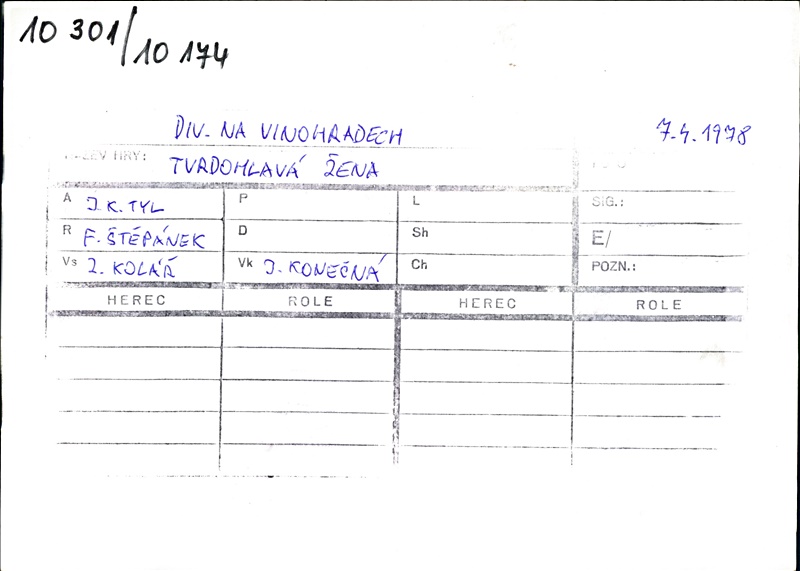 10 301/10 174
DIV. NA VINOHRADECH 7.4.1978
NÁZEV HRY: TVRDOHLAVÁ ŽENA
A J.K. TYL P L SIG.:
R F. ŠTĚPÁNEK D Sh E/
Vs Z. KOLÁŘ Vk J. KONEČNÁ Ch POZN.:
HEREC ROLE HEREC ROLE